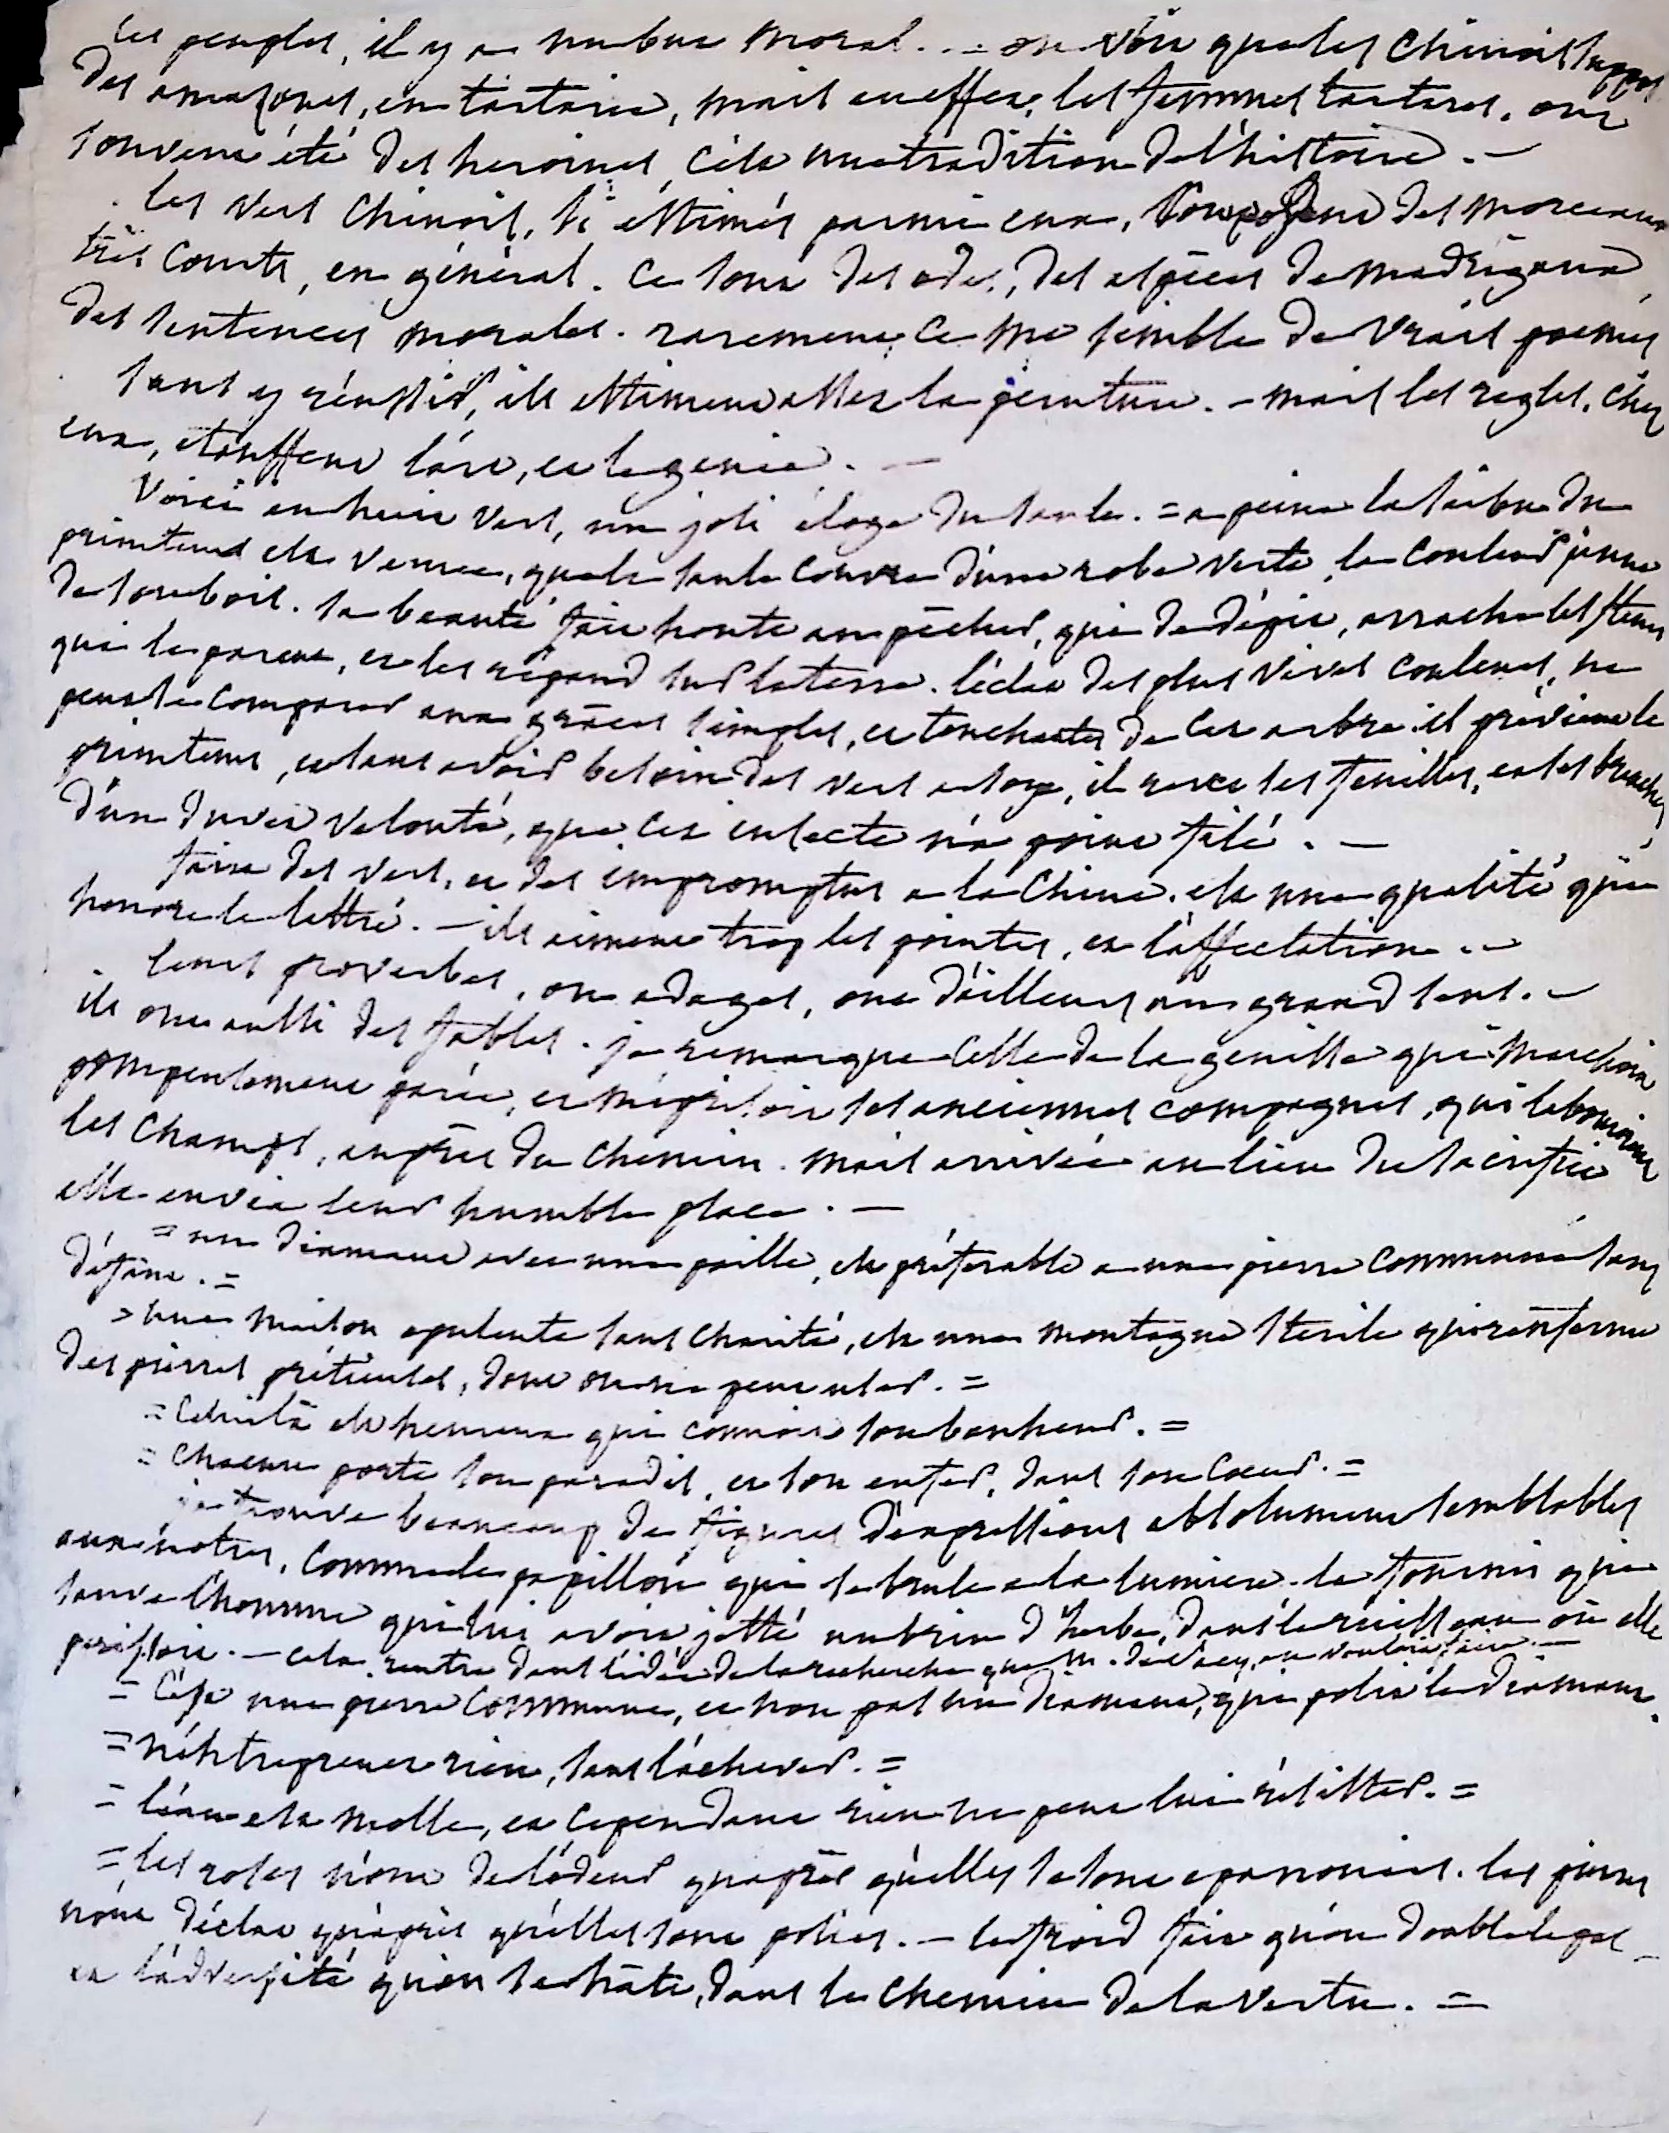 les peuples, il y a un but moral. — on voit que les chinois suppos
des amazones, en tartarie, mais en effet, les femmes tartares, ont
souvent été des heroines, c'est une tradition de l'histoire. —
les vers chinois, si estimés parmi eux, composent des morceaux
très courts, en général. ce sont des odes, des espèces de madrigaux,
des sentences morales. rarement ce me semble de vrais poemes
sans y réussir, ils estiment assez la peinture. — mais les regles, chez
eux, etouffent l'art, et le genie. —
Voici en huit vers, un joli éloge du saule. = a peine la saison du
printems est venue, que le saule couvre d'une robe verte, la couleur jaune
de son bois. sa beauté fait honte au pêcher, qui de dépit, arrache les fleurs
qui le parent, et les répand sur la terre. l'éclat des plus vives couleurs, ne
peut se comparer aux grâces simples, et touchantes de cet arbre. il prévient le
printems, et sans avoir besoin des vers a soye, il revet ses feuilles, et ses branches,
d'un duvet velouté, que cet insecte n'a point filé. —
faire des vers, et des impromptus a la Chine, est une qualité qui
honore le lettré. — ils aiment trop les pointes, et l'affectation. —
leurs proverbes, ou adages, ont d'ailleurs un grand sens. —
ils ont aussi des fables. je remarque celle de la genisse qui marchoit
pompeusement parée, et méprisoit ses anciennes compagnes, qui labouroient
les champs, auprès du chemin. mais arrivée au lieu du sacrifice
elle envia leur humble place. —
= un diamant avec une paille, est préférable a une pierre commune sans
défaut. =
= une maison opulente sans charité, est une montagne sterile qui renferme
des pierres prétieuses, dont on ne peut user. =
= Celui là est heureux qui connoit son bonheur. =
= chacun porte son paradis, et son enfer, dans son coeur. =
je trouve beaucoup de figures d'expressions absolument semblables
aux nôtres, comme le papillon qui se brule a la lumiere. la fourmi qui
sauve l'homme qui lui avoit jetté un brin d'herbe, dans le ruisseau où elle
perissoit. — cela rentre dans l'idée de la recherche que M. de vouloit faire. —
= C'est une pierre commune, et non pas un diamant, qui polit le diamant.
= n'entreprenez rien, sans l'achever. =
= l'eau est molle, et cependant rien ne peut lui résister. =
= les roses n'ont de l'odeur qu'après qu'elles se sont epanouies. les pierres
n'ont d'éclat qu'après qu'elles sont polies. — le froid fait qu'on double le pas —
et l'adversité qu'on se hâte, dans le chemin de la vertu. =